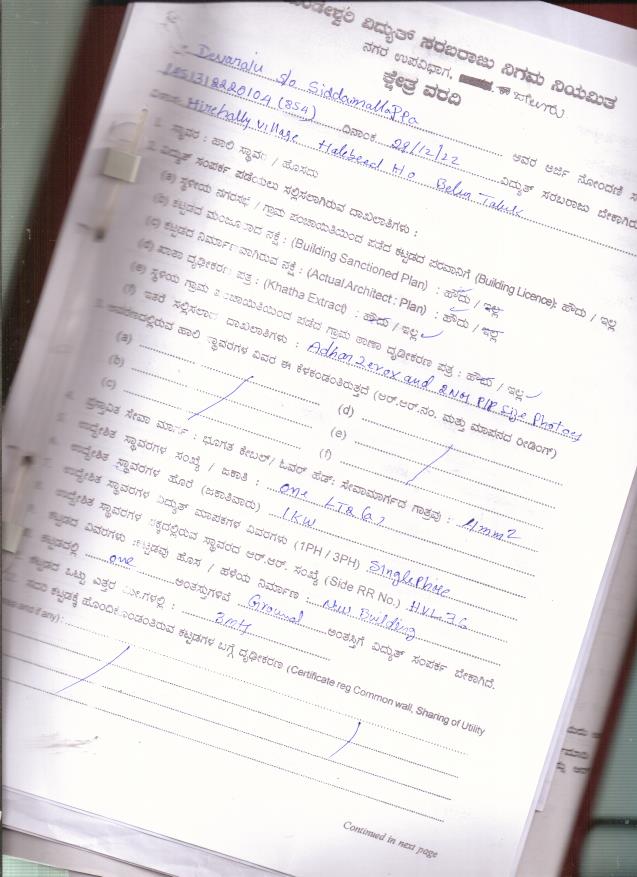 ವಿದ್ಯುತ್ ಸರಬರಾಜು ನಿಗಮ ನಿಯಮಿತ
ನಗರ ಉಪವಿಭಾಗ,
ಕ್ಷೇತ್ರ ವರದಿ
Devaraju S/o Siddamallappa ಅವರ ಅರ್ಜಿ ನೋಂದಣಿ ಸ
(854) ದಿನಾಂಕ 28/12/22 ವಿದ್ಯುತ್ ಸರಬರಾಜು ಬೇಕಾಗಿರು
Hirehally Village Halebeed Ho Belur Taluk
1. ಸ್ಥಾವರ : ಹಾಲಿ ಸ್ಥಾವರ / ಹೊಸದು
2. ವಿದ್ಯುತ್ ಸಂಪರ್ಕ ಪಡೆಯಲು ಸಲ್ಲಿಸಲಾಗಿರುವ ದಾಖಲಾತಿಗಳು :
(a) ಸ್ಥಳೀಯ ನಗರಸಭೆ / ಗ್ರಾಮ ಪಂಚಾಯಿತಿಯಿಂದ ಪಡೆದ ಕಟ್ಟಡದ ಪರವಾನಿಗೆ (Building Licence): ಹೌದು / ಇಲ್ಲ
(b) ಕಟ್ಟಡದ ಮಂಜೂರಾದ ನಕ್ಷೆ : (Building Sanctioned Plan) : ಹೌದು / ಇಲ್ಲ
(c) ಕಟ್ಟಡದ ನಿರ್ಮಾಣವಾಗಿರುವ ನಕ್ಷೆ : (Actual Architect : Plan) : ಹೌದು / ಇಲ್ಲ
(d) ಖಾತಾ ದೃಢೀಕರಣ ಪತ್ರ : (Khatha Extract) : ಹೌದು / ಇಲ್ಲ
(e) ಸ್ಥಳೀಯ ಗ್ರಾಮ ಪಂಚಾಯಿತಿಯಿಂದ ಪಡೆದ ಗ್ರಾಮ ಠಾಣಾ ದೃಢೀಕರಣ ಪತ್ರ : ಹೌದು / ಇಲ್ಲ
(f) ಇತರೆ ಸಲ್ಲಿಸಲಾದ ದಾಖಲಾತಿಗಳು : Adhar Zerox and 2 Nos P/P Size Photos
3. ಆವರಣದಲ್ಲಿರುವ ಹಾಲಿ ಸ್ಥಾವರಗಳ ವಿವರ ಈ ಕೆಳಕಂಡಂತಿರುತ್ತದೆ (ಆರ್.ಆರ್.ನಂ. ಮತ್ತು ಮಾಪನದ ರೀಡಿಂಗ್)
(a) (d)
(b) (e)
(c) (f)
4. ಪ್ರಸ್ತಾವಿತ ಸೇವಾ ಮಾರ್ಗ : ಭೂಗತ ಕೇಬಲ್/ ಓವರ್ ಹೆಡ್: ಸೇವಾಮಾರ್ಗದ ಗಾತ್ರವು : 4mm2
5. ಉದ್ದೇಶಿತ ಸ್ಥಾವರಗಳ ಸಂಖ್ಯೆ / ಜಕಾತಿ : one
6. ಉದ್ದೇಶಿತ ಸ್ಥಾವರಗಳ ಹೊರೆ (ಜಕಾತಿವಾರು) 1KW
7. ಉದ್ದೇಶಿತ ಸ್ಥಾವರಗಳ ವಿದ್ಯುತ್ ಮಾಪಕಗಳ ವಿವರಗಳು (1PH / 3PH) Single Phase
8. ಉದ್ದೇಶಿತ ಸ್ಥಾವರಗಳ ಪಕ್ಕದಲ್ಲಿರುವ ಸ್ಥಾವರದ ಆರ್.ಆರ್. ಸಂಖ್ಯೆ (Side RR No.) HVL 36
ಕಟ್ಟಡದ ವಿವರಗಳು ಕಟ್ಟಡವು ಹೊಸ / ಹಳೆಯ ನಿರ್ಮಾಣ : New Building
ಕಟ್ಟಡದಲ್ಲಿ one ಅಂತಸ್ತುಗಳಿವೆ Ground ಅಂತಸ್ತಿಗೆ ವಿದ್ಯುತ್ ಸಂಪರ್ಕ ಬೇಕಾಗಿದೆ.
ಕಟ್ಟಡದ ಒಟ್ಟು ಎತ್ತರ ಮೀ.ಗಳಲ್ಲಿ : 3mt
ಸದರಿ ಕಟ್ಟಡಕ್ಕೆ ಹೊಂದಿಕೊಂಡಂತಿರುವ ಕಟ್ಟಡಗಳ ಬಗ್ಗೆ ದೃಢೀಕರಣ (Certificate reg Common wall, Sharing of Utility
and if any) :
Continued in next page